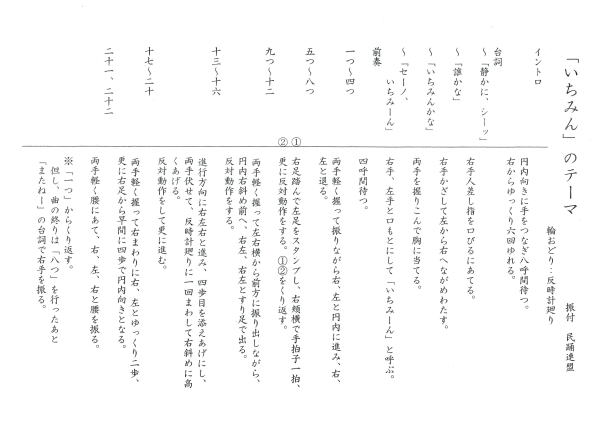 「いちみん」のテーマ
振付 民踊連盟
輪おどり：反時計廻り
イントロ
円内向きに手をつなぎ八呼間待つ。
右からゆっくり六回ゆれる。
台詞
～「静かに、シーッ」
右手人差し指を口びるにあてる。
～「誰かな」
右手かざして左から右へながめわたす。
～「いちみんかな」
両手を握りこんで胸に当てる。
～「セーノ、
いちみーん」
右手、左手と口もとにして「いちみーん」と呼ぶ。
前奏
四呼間待つ。
一つ～四つ
両手軽く握って振りながら右、左と円内に進み、右、
左と退る。
五つ～八つ
① 右足踏んで左足をスタンプし、右頬横で手拍子一拍、
② 更に反対動作をする。①②をくり返す。
九つ～十二
両手軽く握って左右横から前方に振り出しながら、
円内右斜め前へ、右左、右左とすり足で出る。
反対動作をする。
十三～十六
進行方向に右左右と進み、四歩目を添えあげにし、
両手伏せて、反時計廻りに一回まわして右斜めに高
くあげる。
反対動作をして更に進む。
十七～二十
両手軽く握って右まわりに右、左とゆっくり二歩、
更に右足から早間に四歩で円内向きとなる。
二十一、二十二
両手軽く腰にあて、右、左、右と腰を振る。
※「一つ」からくり返す。
但し、曲の終りは「八つ」を行ったあと
「またねー」の台詞で右手を振る。